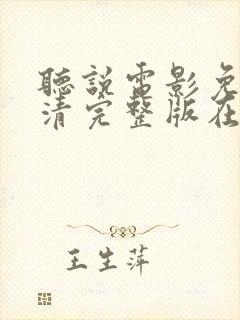 聽說電影免
清完整版在
王生萍